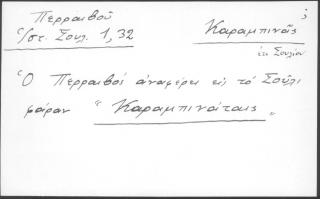 Περραιβοῦ
Ἱστ. Σουλ. 1, 32
Καραμπινᾶς
ἐκ Σουλίου
Ὁ Περραιβός ἀναφέρει εἰς τό Σοῦλι
φάραν "Καραμπινάταις"